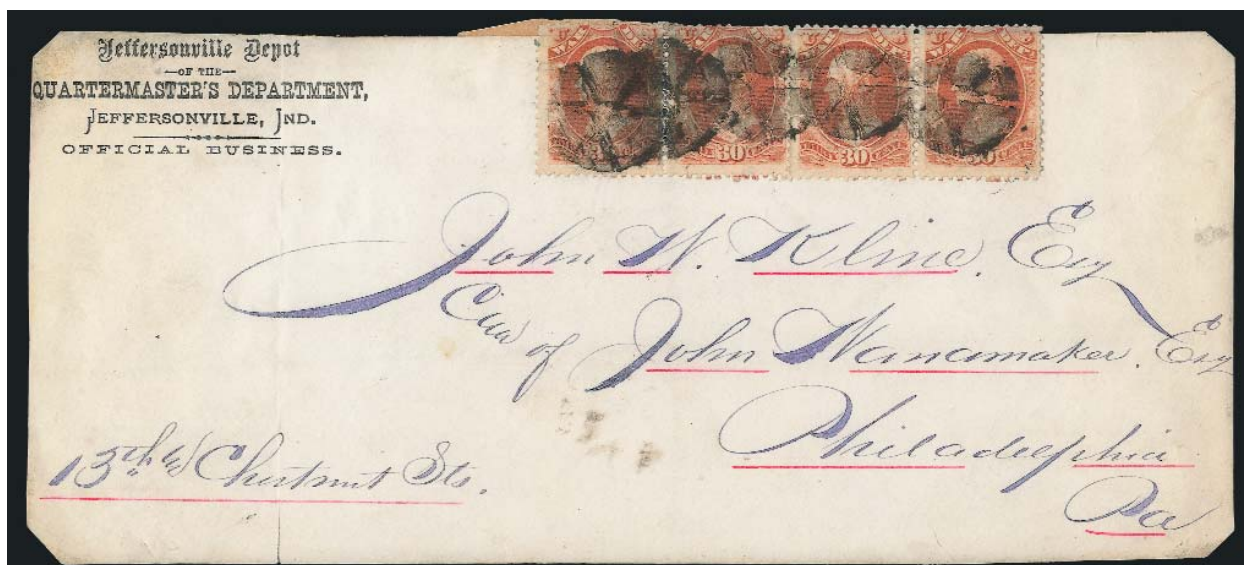 Jeffersonville Depot
—OF THE—
QUARTERMASTER'S DEPARTMENT,
JEFFERSONVILLE, IND.
OFFICIAL BUSINESS.
WAR DEPT.
30 30
John W. Kline, Esq
Care of John Wanamaker. Esq
Philadelphia
13th & Chestnut Sts.
Pa